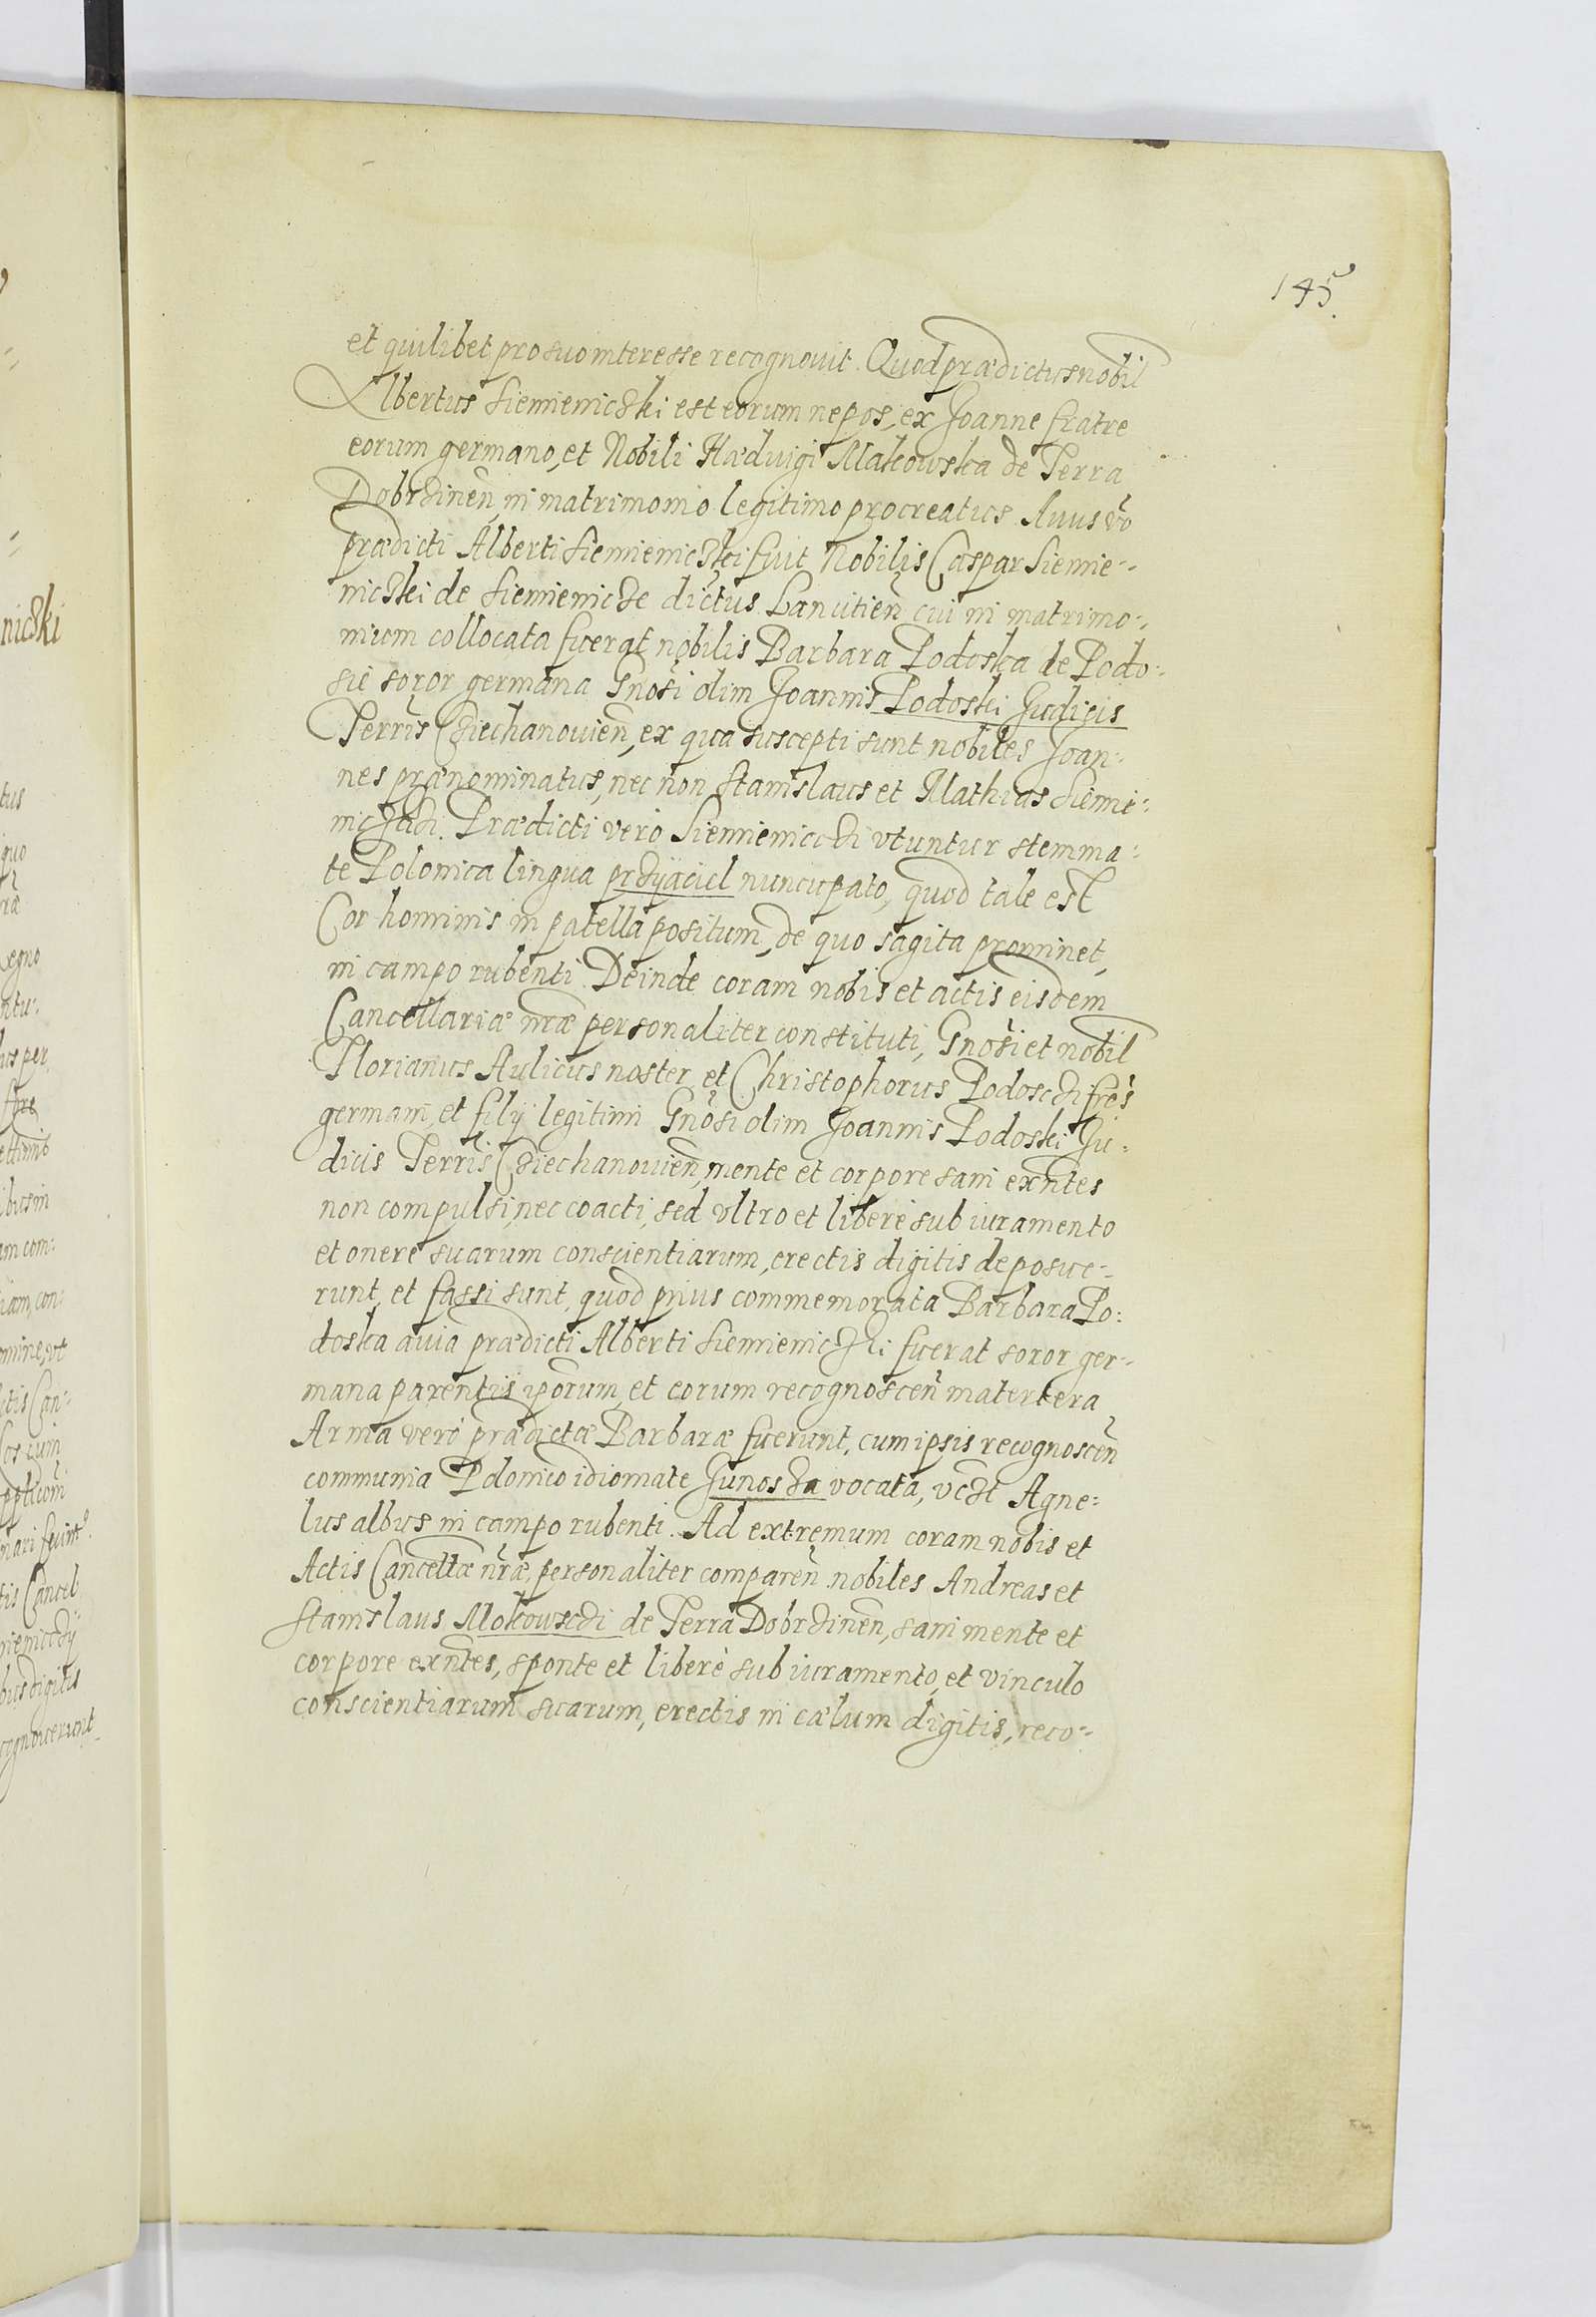 145.
et quilibet pro suo interesse recognouit. Quod prædictus nobil
Albertus Siemieniczki est eorum nepos, ex Joanne fratre
eorum germano, et Nobili Hæduigi Makowska de Terra
Dobrzineñ, in matrimonio legitimo procreatus. Auus v̄o
prædicti Alberti Siemieniczki fuit Nobilis Caspar Siemie-
niczki de Siemienicze dictus Lancitieñ cui in matrimo-
nium collocata fuerat nobilis Barbara Podoska de Podo-
sie soror germana Gnosi olim Joannis Podoski Judicis
Terrīs Cziechanouieñ, ex qua suscepti sunt nobiles Joan-
nes prænominatus, nec non Stanislaus et Mathias Siemie-
niczczi. Prædicti vero Siemieniczi vtuntur stemma-
te Polonica lingua przyiaciel nuncupato, quod tale est
Cor hominis in patella positum, de quo sagita prominet,
in campo rubenti. Deinde coram nobis et actis eisdem
Cancellariæ nr̄æ personaliter constituti, Gnosi et nobil
Florianus Aulicus noster, et Christophorus Podosczi fr̄es
germani, et filij legitimi Gnosi olim Joannis Podoski Ju-
dicis Terrīs Cziechanouieñ, mente et corpore sani exñtes
non compulsi, nec coacti, sed vltro et liberè sub iuramento
et onere suarum conscientiarum, erectis digitis deposue-
runt, et fassi sunt, quod prius commemorata Barbara Po-
doska auia prædicti Alberti Siemieniczki fuerat soror ger-
mana parentis ip̄orum, et eorum recognosceñ matertera
Arma verò prædictæ Barbaræ fuerunt, cum ipsis recognosceñ
communia Polonico idiomate Junosza vocata, vczt Agne-
lus albus in campo rubenti. Ad extremum coram nobis et
Actis Cancellæ nr̄æ, personaliter compareñ nobiles Andreas et
Stanislaus Mokowsczi de Terra Dobrzineñ, sani mente et
corpore exñtes, sponte et liberè sub iuramento, et vinculo
conscientiarum suarum, erectis in cælum digitis, reco-